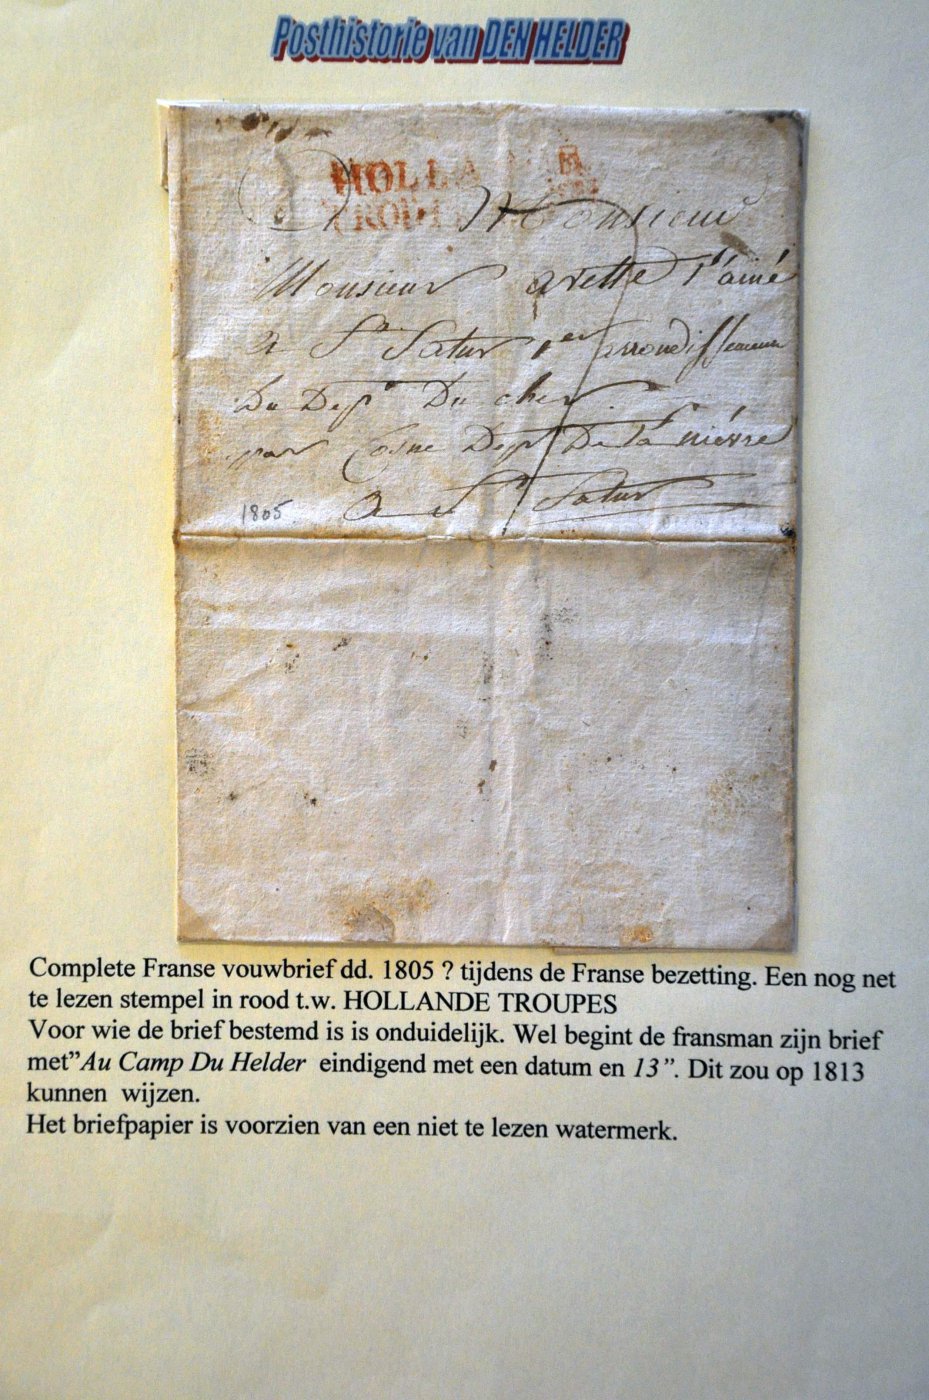 Posthistorie van DEN HELDER
HOLLA
TROUP
A Monsieur
Monsieur arette l'ainé
a St Satur 1er arrondissement
Du Dept Du cher
par Cosne Dept De la nièvre
A St Satur
1805
Complete Franse vouwbrief dd. 1805 ? tijdens de Franse bezetting. Een nog net
te lezen stempel in rood t.w. HOLLANDE TROUPES
Voor wie de brief bestemd is is onduidelijk. Wel begint de fransman zijn brief
met”Au Camp Du Helder eindigend met een datum en 13”. Dit zou op 1813
kunnen wijzen.
Het briefpapier is voorzien van een niet te lezen watermerk.